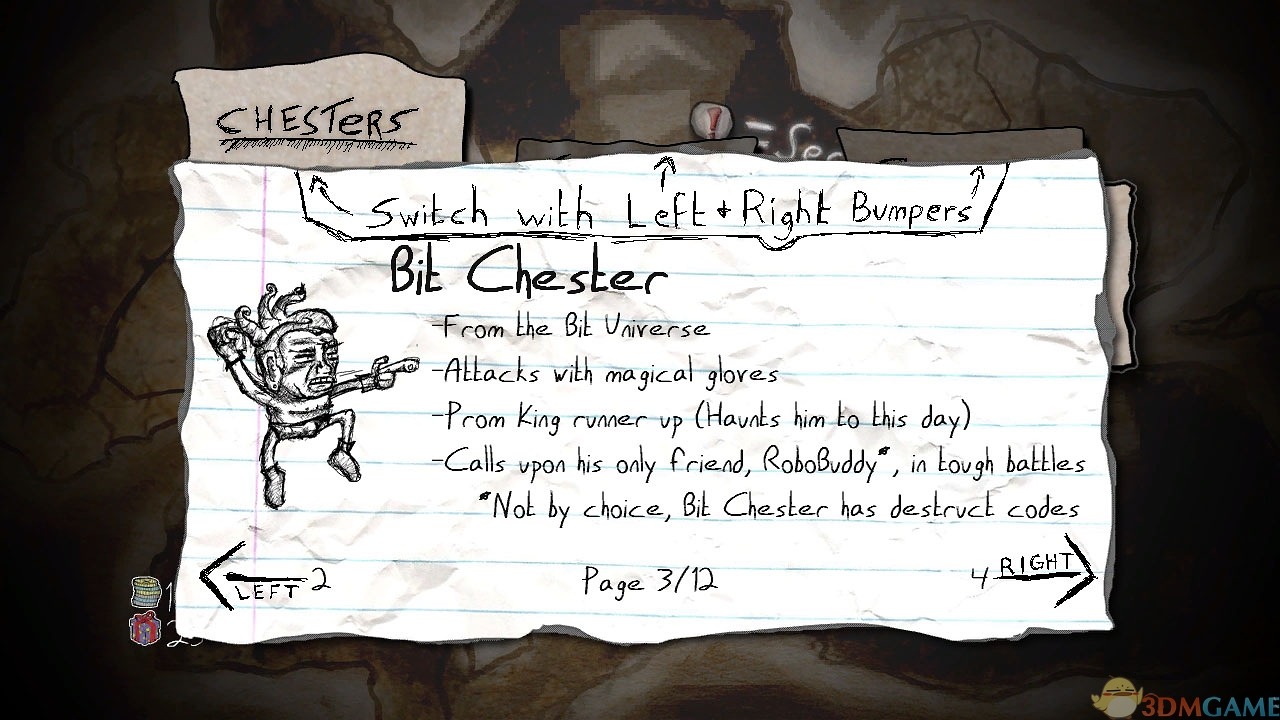 CHESTERS
Switch with Left + Right Bumpers
Bit Chester
-From the Bit Universe
-Attacks with magical gloves
-Prom King runner up (Haunts him to this day)
-Calls upon his only friend, RoboBuddy*, in tough battles
*Not by choice, Bit Chester has destruct codes
LEFT 2
Page 3/12
4 RIGHT
3DMGAME